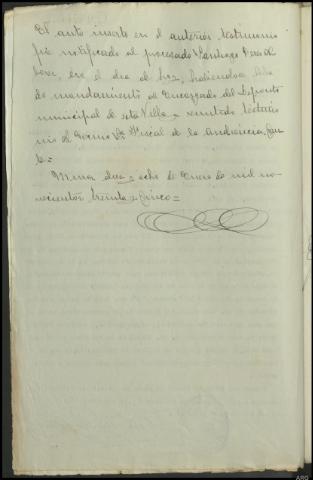 El auto inserto en el anterior testimonio
fué notificado al procesado Santiago
en el dia de hoy, habiendose
do mandamiento al Encargado del Deposito
municipal de esta Villa y remitido testimo
nio al Excmo Sr. Fiscal de la Audiencia, Doy
fe=
diez y ocho de Enero de mil no
vecientos treinta y cinco=